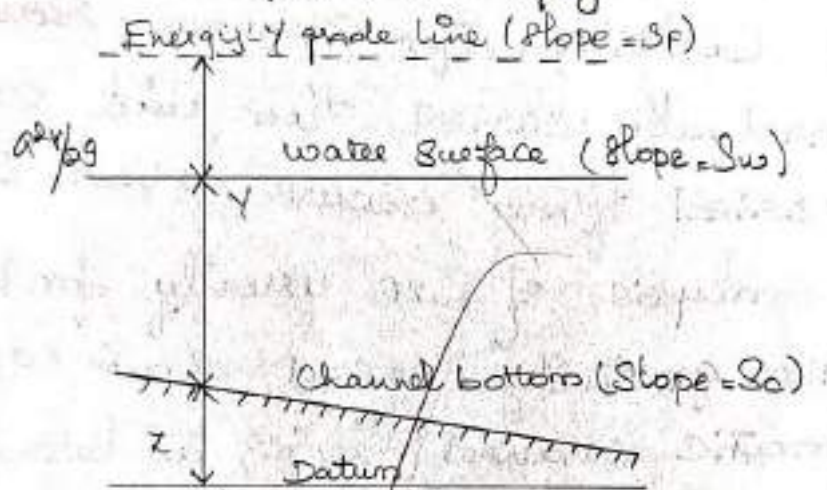 Energy-Y grade line (Slope = Sf)
a²v/2g
water Surface (Slope = Sw)
Y
Channel bottom (Slope = So)
Z
Datum